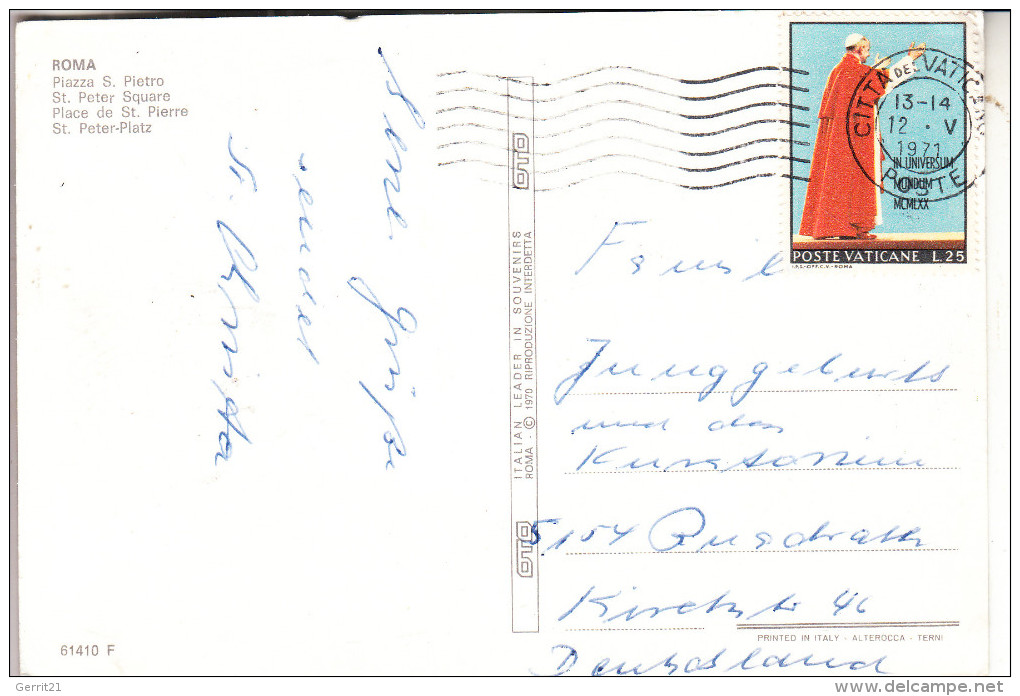 ROMA
Piazza S. Pietro
St. Peter Square
Place de St. Pierre
St. Peter-Platz
Grüße
ITALIAN LEADER IN SOUVENIRS
ROMA - © 1970 RIPRODUZIONE INTERDETTA
OTO
OTO
CITTÀ DEL VATICANO
13-14
12 · V
1971
POSTE
IN UNIVERSUM
MUNDUM
MCMLXX
POSTE VATICANE L.25
I.P.S.-OFF.C.V.-ROMA
Famil
Junggeburth
und das
5154 Quadrath
Kirchstr 46
Deutschland
PRINTED IN ITALY - ALTEROCCA - TERNI
61410 F
Gerrit21